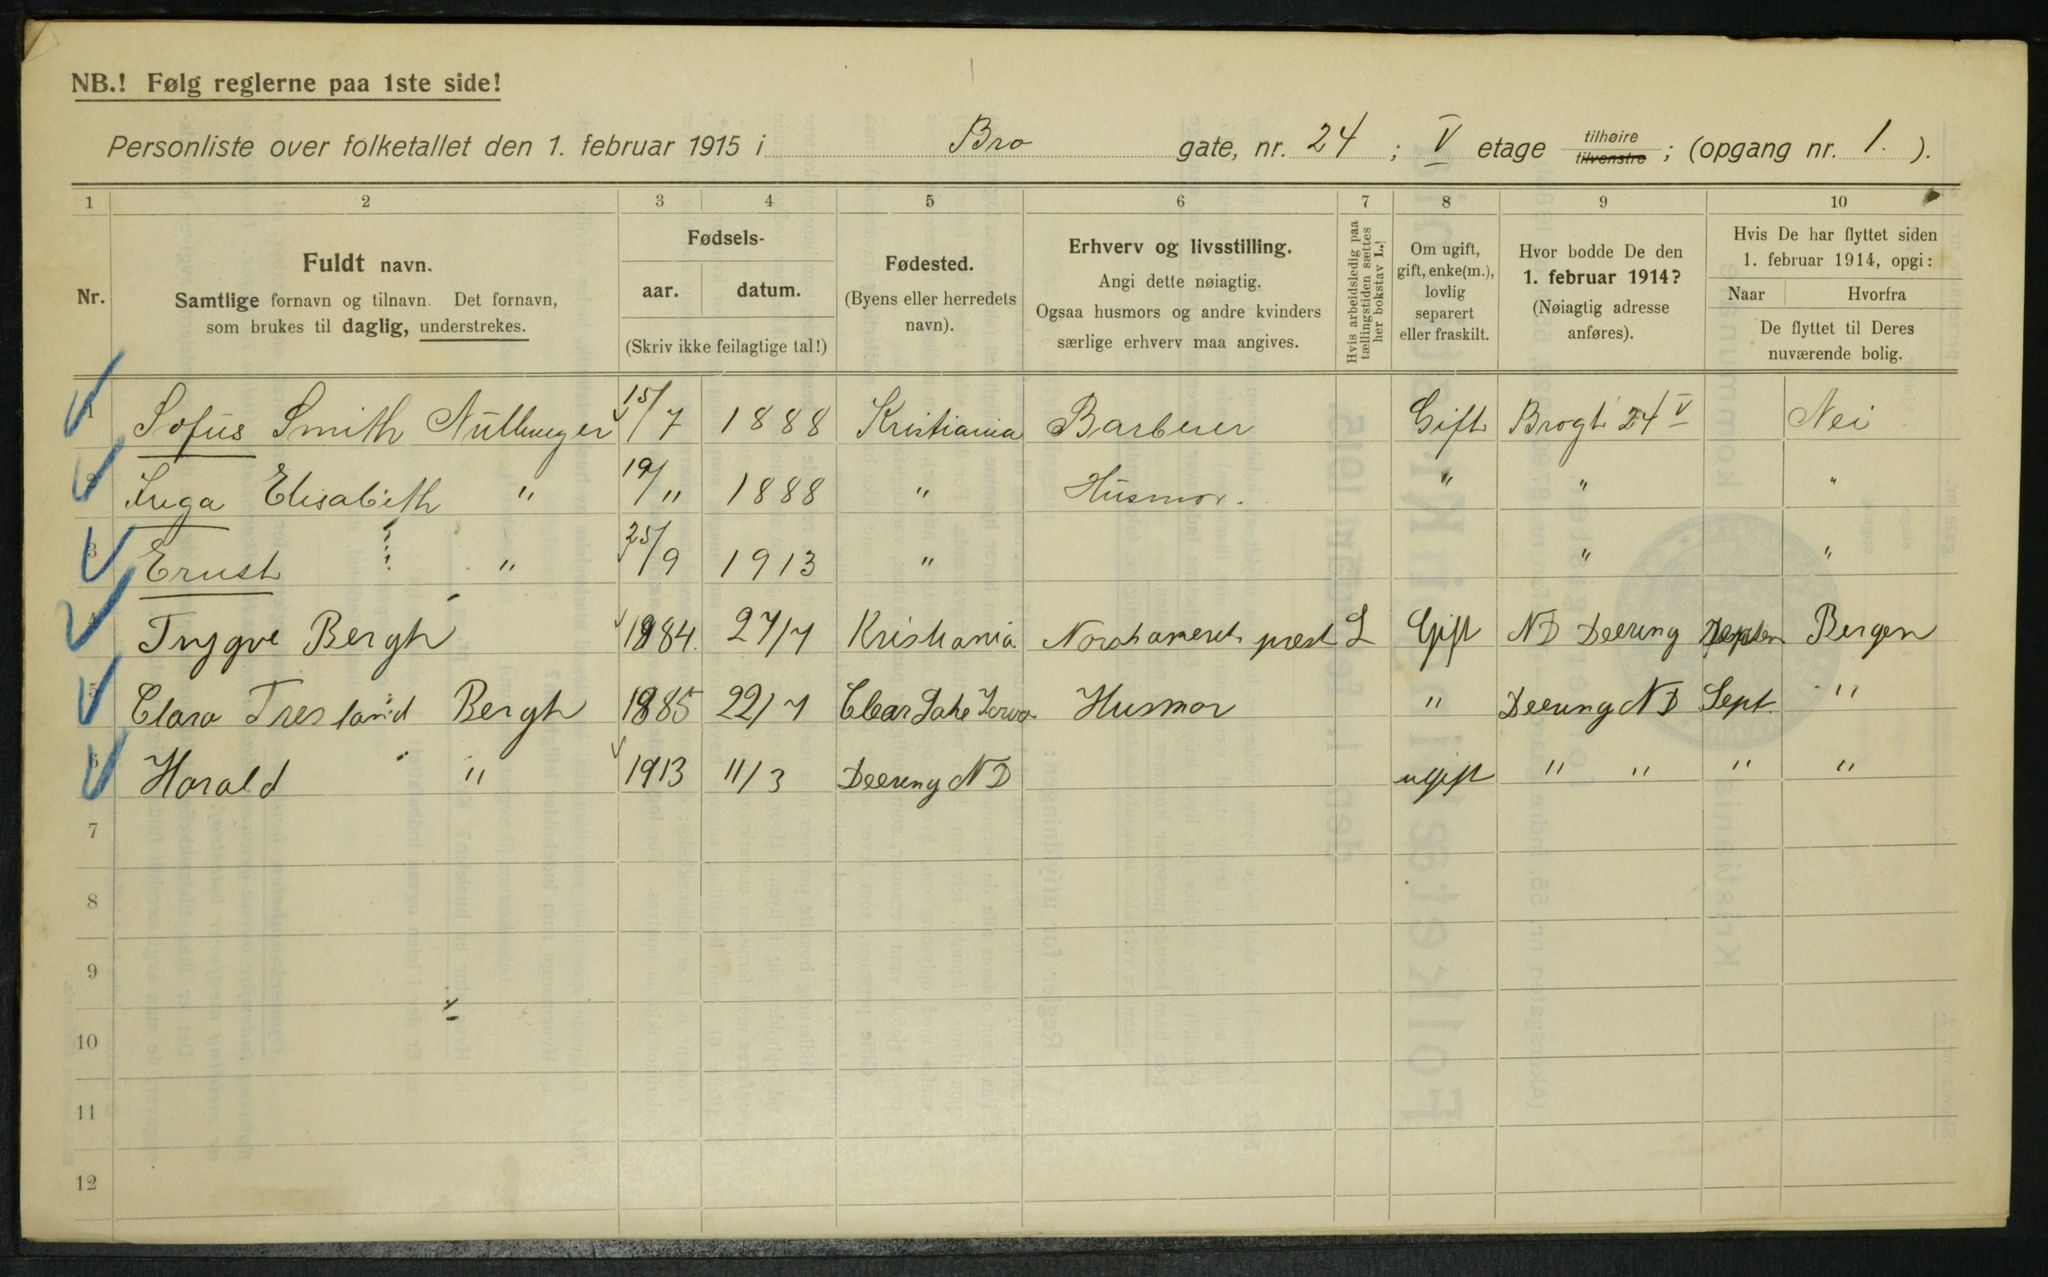 NB.! Følg reglerne paa 1ste side!
Personliste over folketallet den 1. februar 1915 i Bro gate, nr. 24 ; V etage tilhøire tilvenstre ; (opgang nr. 1. ).
1 2 3 4 5 6 7 8 9 10
Nr.
Fuldt navn.
Samtlige fornavn og tilnavn. Det fornavn,
som brukes til daglig, understrekes.
Fødsels-
aar. datum.
(Skriv ikke feilagtige tal!)
Fødested.
(Byens eller herredets
navn).
Erhverv og livsstilling.
Angi dette nøiagtig.
Ogsaa husmors og andre kvinders
særlige erhverv maa angives.
Hvis arbeidsledig paa
tællingstiden sættes
her bokstav L.!
Om ugift,
gift, enke(m.),
lovlig
separert
eller fraskilt.
Hvor bodde De den
1. februar 1914?
(Nøiagtig adresse
anføres).
Hvis De har flyttet siden
1. februar 1914, opgi:
Naar Hvorfra
De flyttet til Deres
nuværende bolig.
1 Sofus Smith 15/7 1888 Kristiania Barberer Gift Brogt 24 V Nei
2 Inga Elisabeth " 19/11 1888 " Husmor. " " "
3 Ernst " 25/9 1913 " " "
4 Trygve Bergh 1884. 27/7 Kristiania prest L Gift ND Deering Bergen
5 Clara Bergh 1885 22/7 Clear Lake Iowa Husmor " Deering ND Sept. "
6 Harald " 1913 11/3 Deering ND ugift " " " "
7
8
9
10
11
12